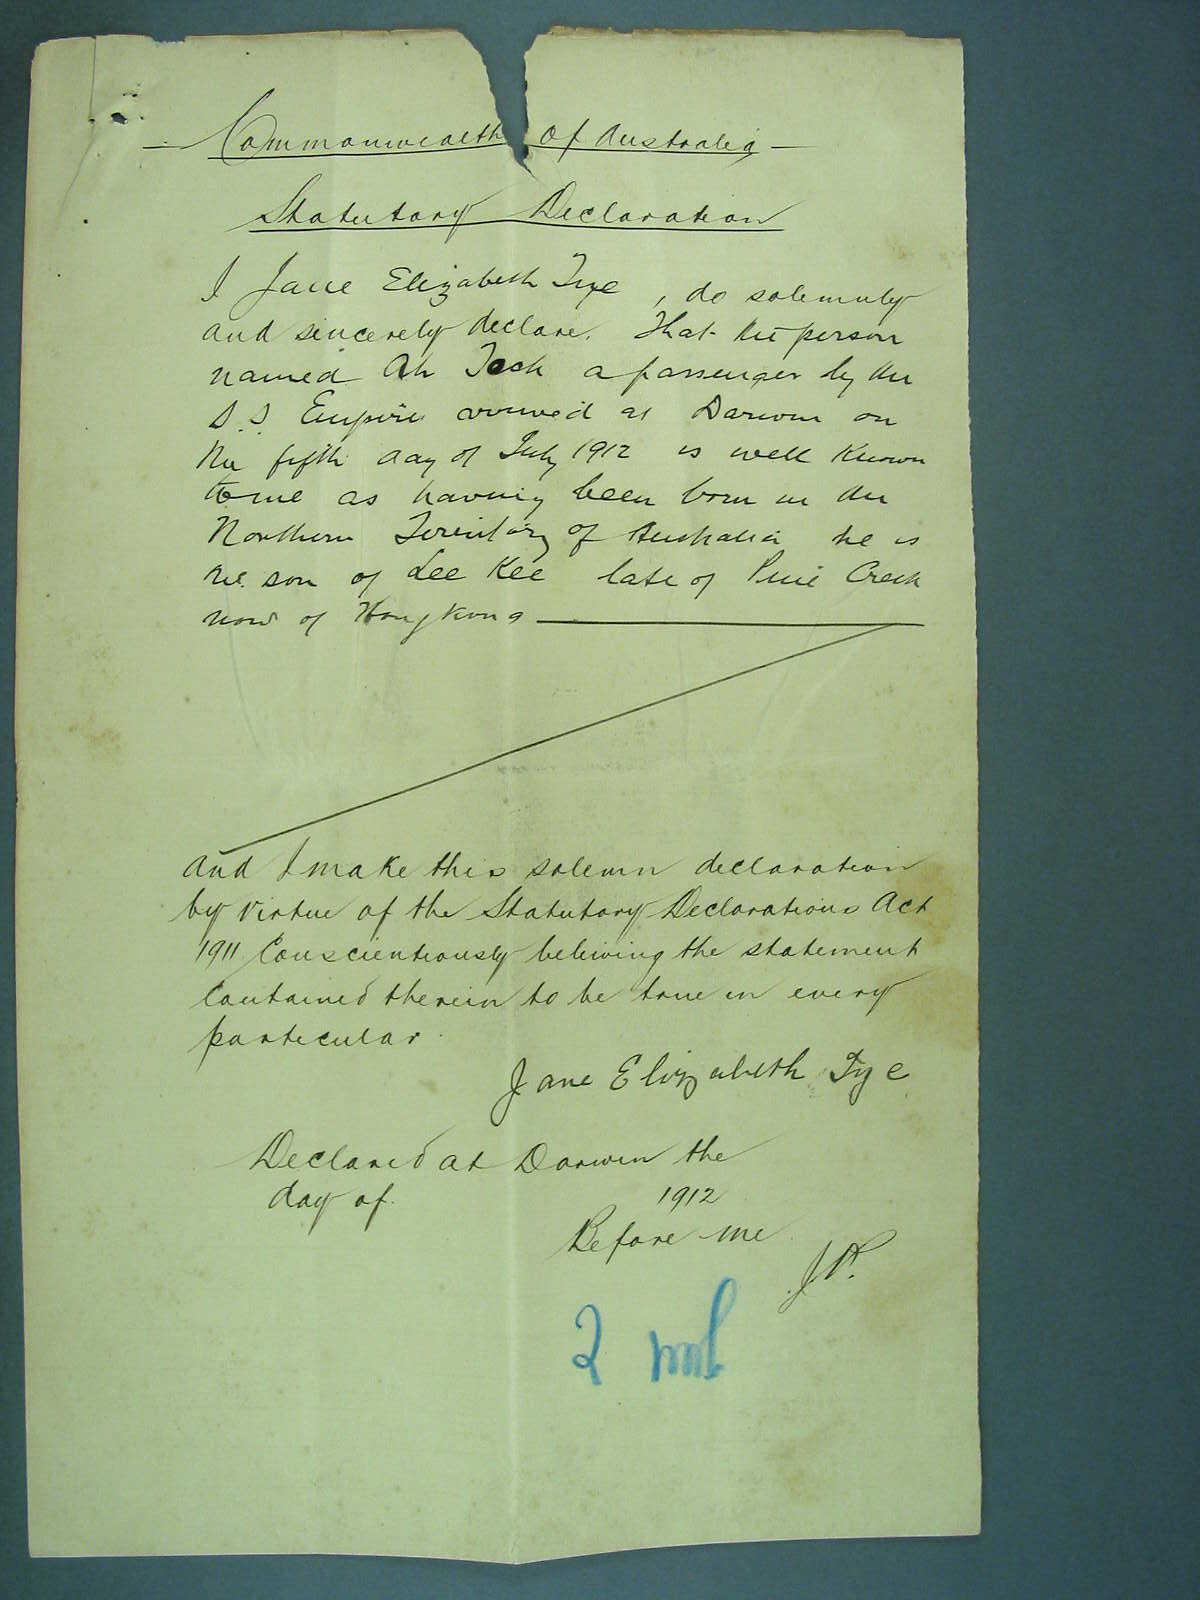 Commonwealth of Australia
Statutory Declaration
I Jane Elizabeth Tye, do solemnly
and sincerely declare. That the person
named Ah Tock a passenger by the
S.S. Empire arrived at Darwin on
the fifth day of July 1912 is well known
to me as having been born in the
Northern Territory of Australia he is
the son of Lee Kee late of Pine Creek
now of Hong Kong
and I make this solemn declaration
by virtue of the Statutory Declarations Act
1911 Conscientiously beleiving the statement
Contained therein to be true in every
particular
Jane Elizabeth Tye
Declared at Darwin the
day of 1912
Before me
J.P.
2